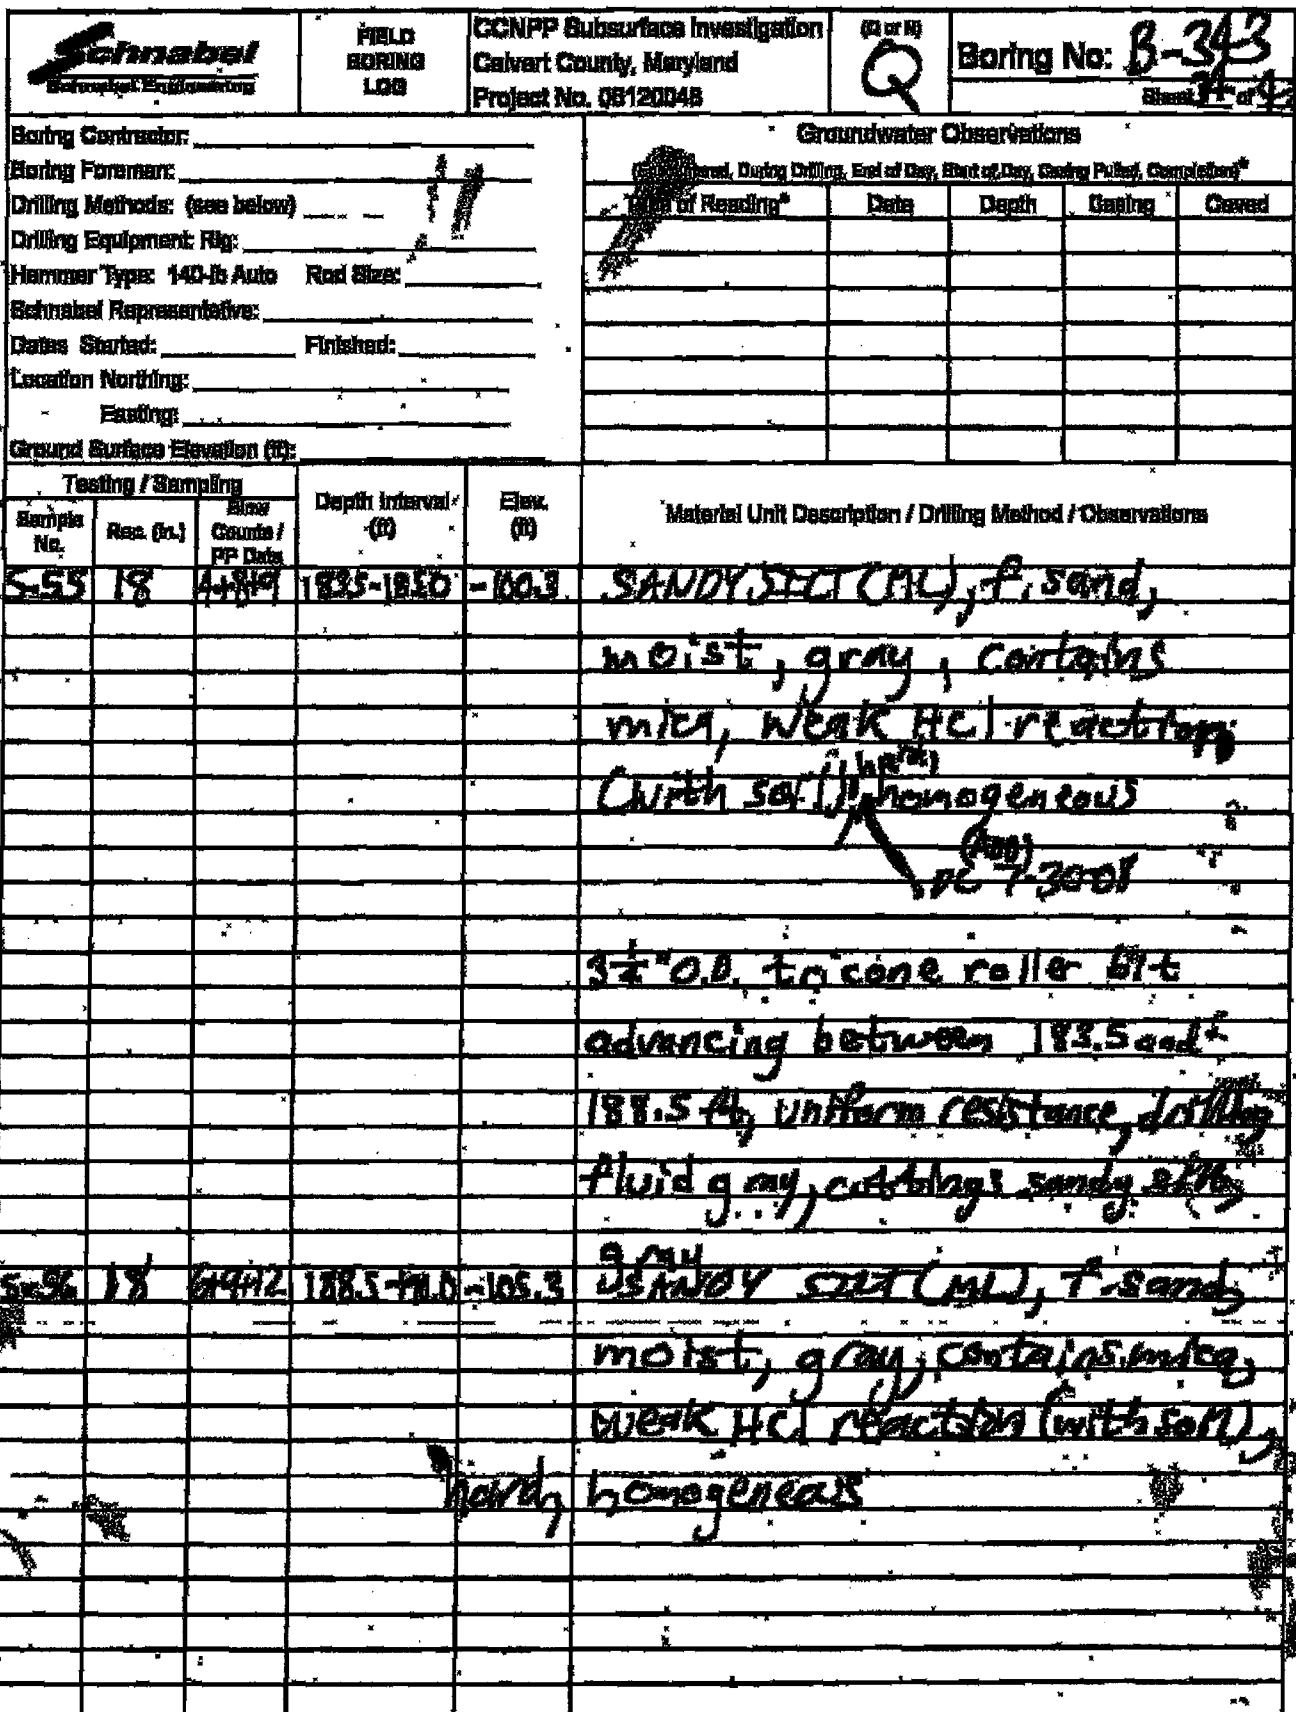 Schnabel
Schnabel Engineering
FIELD
BORING
LOG
CCNPP Subsurface Investigation
Calvert County, Maryland
Project No. 06120048
(Q or N)
Q
Boring No: B-343
Sheet of
Boring Contractor:
Boring Foreman:
Drilling Methods: (see below)
Drilling Equipment: Rig:
Hammer Type: 140-lb Auto Rod Size:
Schnabel Representative:
Dates Started: Finished:
Location Northing:
Easting:
Ground Surface Elevation (ft):
Groundwater Observations
During Drilling, End of Day, Start of Day, Casing Pulled, Completion)*
of Reading* Date Depth Casing Caved
Testing / Sampling
Sample No. Rec. (in.) Blow Counts / PP Data Depth Interval (ft) Elev. (ft) Material Unit Description / Drilling Method / Observations
S-55 18 4+8+9 183.5-185.0 -100.3 SANDY SILT (ML), f. sand,
moist, gray, contains
mica, weak HCl reaction
(with soil), homogeneous
hard,
7-30-08
O.D. tricone roller bit
advancing between 183.5 and
188.5 ft, uniform resistance, drilling
fluid gray, cuttings sandy silt,
gray
S-56 18 6+9+12 188.5-190.0 -105.3 SANDY SILT (ML), f-sand,
moist, gray, contains mica,
weak HCl reaction (with soil),
hard, homogeneous